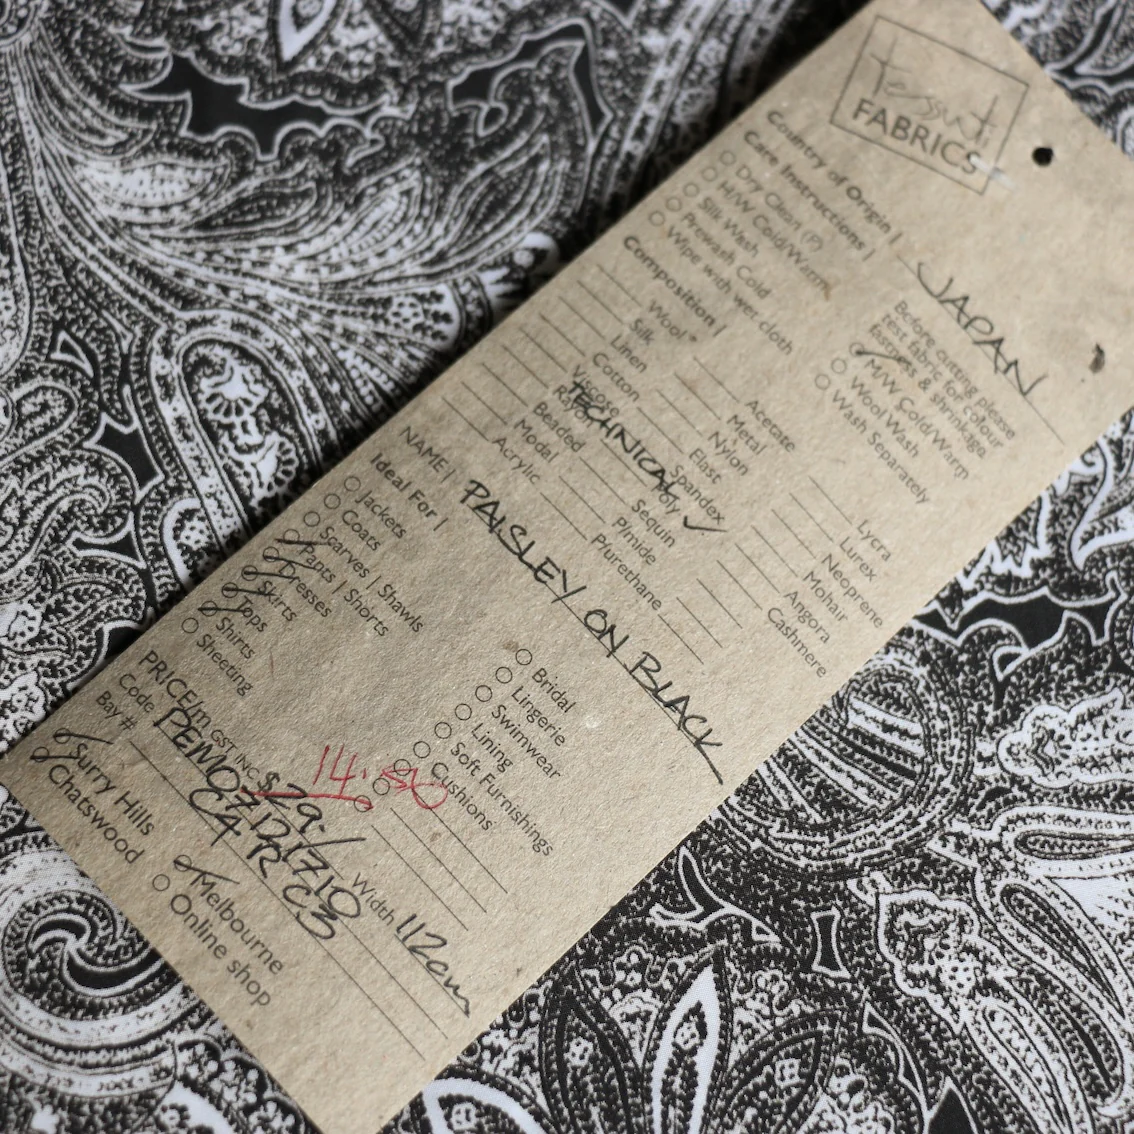 Tessuti
FABRICS
Country of Origin | JAPAN
Care Instructions |
Dry Clean (P)
H/W Cold/Warm
Silk Wash
Prewash Cold
Wipe with wet cloth
Before cutting please
test fabric for colour
fastness & shrinkage
M/W Cold/Warm
Wool Wash
Wash Separately
Composition |
Wool
Silk
Linen
Cotton
Viscose
Rayon
Beaded
Modal
Acrylic
TECHNICAL
Acetate
Metal
Nylon
Elast
Spandex
Poly
Sequin
P/mide
P/urethane
Lycra
Lurex
Neoprene
Mohair
Angora
Cashmere
NAME | PAISLEY ON BLACK
Ideal For |
Jackets
Coats
Scarves | Shawls
Pants | Shorts
Dresses
Skirts
Tops
Shirts
Sheeting
Bridal
Lingerie
Swimwear
Lining
Soft Furnishings
Cushions
14.50
PRICE/m GST INC. $29. Width 112cm
Code PEMO7121710
Bay # C4 R C3
Surry Hills
Chatswood
Melbourne
Online shop